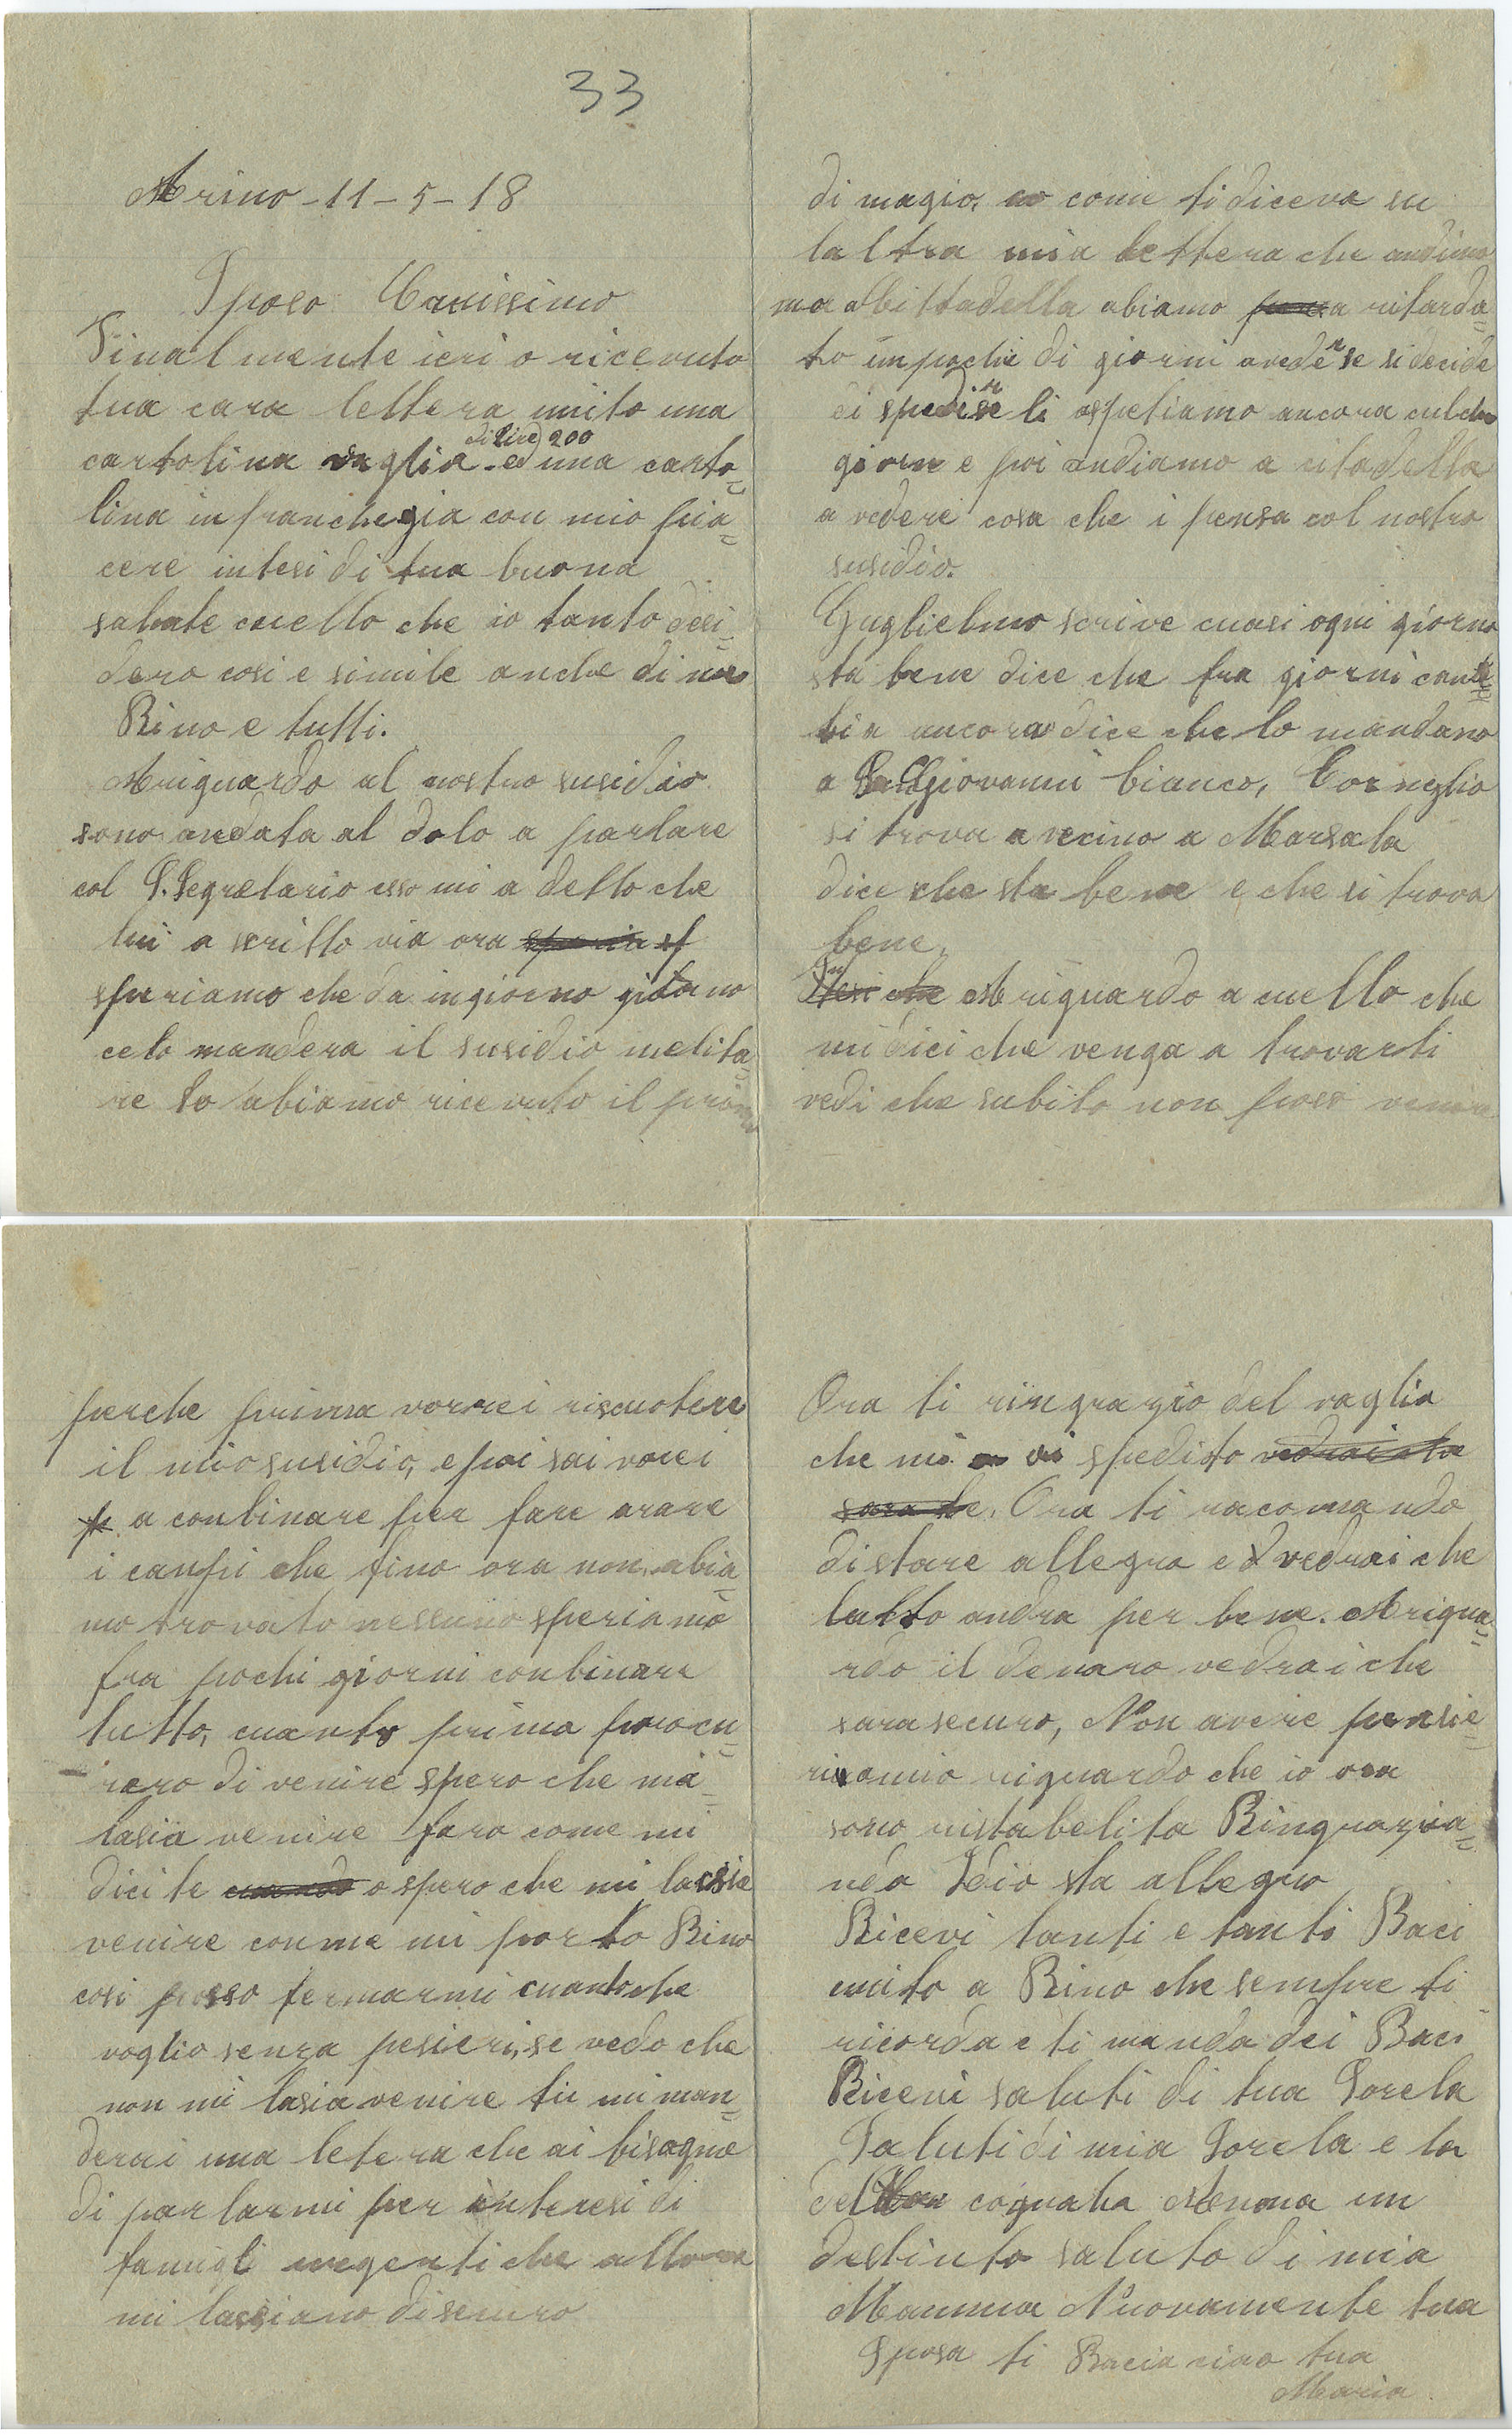 33
Arino - 11 - 5 - 18
Sposo Carissimo
Finalmente ieri o ricevuto
tua cara lettera unito una
di lire 200
cartolina vaglia ed una carto=
lina in franchegia con mio pia=
cere intesi di tua buona
salute cuello che io tanto desi=
dero cosi e simile anche di me
Rino e tutti.
Ariguardo al nostro susidio
sono andata al dolo a parlare
col S. Segretario esso mi a detto che
lui a scritto via ora
speriamo che da ingiorno giorno
celo mandera il susidio melita=
re lo abiamo ricevuto il primo
di magio, come ti diceva su
laltra mia lettera che
abiamo ritarda=
to un pochi di giorni avedere se si decide
di spedirceli aspetiamo ancora culche
giorn e poi andiamo a citadella
a vedere cosa che i pensa col nostro
susidio.
Guglielmo scrive cuasi ogni giorno
sta bene dice che fra giorni cam=
bia ancora dice che lo mandano
a S. giovanni bianco, Corneglio
si trova a vecino a Marsala
dice che sta bene e che si trova
bene.
Ariguardo a cuello che
mi dici che venga a trovarti
vedi che subito non poso venire
perche prima vorrei riscuotere
il mio susidio, e poi sai vorei
a conbinare per fare arare
i canpi che fino ora non abia=
mo trovato nessuno speriamo
fra pochi giorni conbinare
tutto, cuanto prima procu=
rero di venire spero che mi
lasia venire faro come mi
dici te cuando o spero che mi lassie
venire conme mi porto Rino
cosi posso fermarmi cuantoche
voglio senza pesieri, se vedo che
non mi lasia venire tu mi man=
derai una letera che ai bisogno
di parlarmi per interesi di
famigli urgenti che allora
mi lassiano di securo
Ora ti ringrazio del vaglia
che mi ai spedito vedrai che
sara te. Ora ti racomando
di stare allegro e d vedrai che
tutto andra per bene. Arigua=
rdo il denaro vedrai che
sara securo, Non avere pensie=
ri amio riguardo che io ora
sono ristabelita Ringrazia=
ndo Idio sta allegro
Ricevi tanti e tanti Baci
unito a Rino che sempre ti
ricorda e ti manda dei Baci
Ricevi saluti di tua Sorela
Saluti di mia Sorela e la
cognata Nenna un
destinto saluto di mia
Mamma Nuovamente tua
Sposa ti Bacia rino tua
Maria